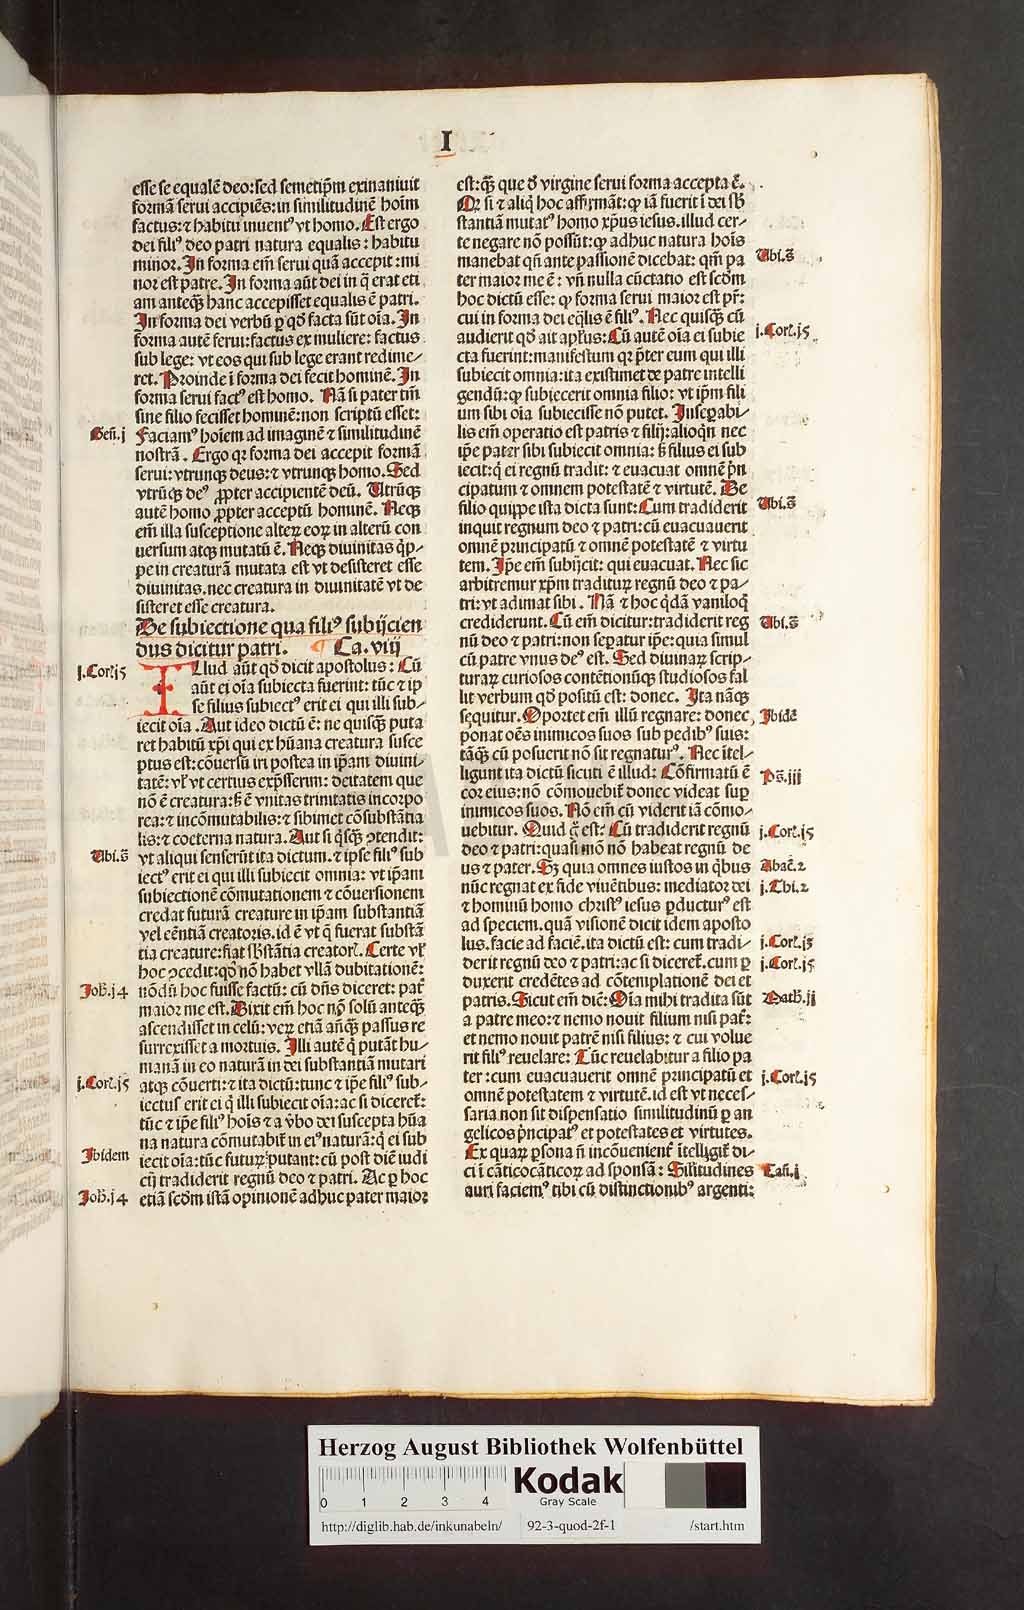 I
esse se equalē deo: sed semetip̄m exinaniuit
formā serui accipiēs: in similitudinē hoīm
factus: ⁊ habitu inuentꝰ vt homo. Est ergo
dei filiꝰ deo patri natura equalis: habitu
minor. In forma em̄ serui quā accepit: mi
nor est patre. In forma aūt dei in q̄ erat eti
am anteq̄ꝫ hanc accepisset equalis ē patri.
In forma dei verbū ꝑ qd̄ facta sūt oīa. In
forma autē serui: factus ex muliere: factus
sub lege: vt eos qui sub lege erant redime⸗
ret. Proinde ī forma dei fecit hominē. In
forma serui factꝰ est homo. Nā si pater tm̄
sine filio fecisset hominē: non scriptū esset:
Gen̄.j
Faciamꝰ hoīem ad imaginē ⁊ similitudinē
nostrā. Ergo qꝛ forma dei accepit formā
serui: vtrunqꝫ deus: ⁊ vtrunqꝫ homo. Sed
vtrūqꝫ deꝰ ꝓpter accipientē deū. Utrūqꝫ
autē homo ꝓpter acceptū hominē. Neqꝫ
em̄ illa susceptione alteꝝ eoꝝ in alterū con
uersum atqꝫ mutatū ē. Neqꝫ diuinitas q̄p⸗
pe in creaturā mutata est vt desisteret esse
diuinitas. nec creatura in diuinitatē vt de
sisteret esse creatura.
De subiectione qua filiꝰ subijcien
dus dicitur patri. ¶ Ca. viij
j.Corī.15
Illud aūt qd̄ dicit apostolus: Cū
aūt ei oīa subiecta fuerint: tūc ⁊ ip
se filius subiectꝰ erit ei qui illi sub⸗
iecit oīa. Aut ideo dictū ē: ne quisqꝫ puta
ret habitū xp̄i qui ex hūana creatura susce
ptus est: cōuersū iri postea in ip̄am diuini⸗
tatē: vl̓ vt certius exp̄sserim: deitatem que
nō ē creatura: sꝫ ē vnitas trinitatis incorpo
rea: ⁊ incōmutabilis: ⁊ sibimet cōsubstātia
lis: ⁊ coeterna natura. Aut si q̄sqꝫ ꝯtendit:
Ubi.s̄
vt aliqui senserūt ita dictum. ⁊ ipse filiꝰ sub
iectꝰ erit ei qui illi subiecit omnia: vt ip̄am
subiectionē cōmutationem ⁊ cōuersionem
credat futurā creature in ip̄am substantiā
vel eēntiā creatoris. id ē vt q̄ fuerat substā
tia creature: fiat sb̄stātia creatorꝭ. Certe vl̓
hoc ꝯcedit: qd̄ nō habet vllā dubitationē:
Joh̄.j4
nōdū hoc fuisse factū: cū dn̄s diceret: pat̄
maior me est. Dixit em̄ hoc nō solū anteqꝫ
ascendisset in celū: veꝝ etiā an̄qꝫ passus re
surrexisset a mortuis. Illi autē q̄ putāt hu⸗
manā in eo naturā in dei substantiā mutari
j.Corī.15
atqꝫ cōuerti: ⁊ ita dictū: tunc ⁊ ip̄e filiꝰ sub⸗
iectus erit ei q̄ illi subiecit oīa: ac si diceret̄:
tūc ⁊ ip̄e filiꝰ hoīs ⁊ a v̄bo dei suscepta hūa
na natura cōmutabit̄ in eiꝰ naturā: q̄ ei sub
Ibidem
iecit oīa: tūc futuꝝ putant: cū post diē iudi
cij tradiderit regnū deo ⁊ patri. Ac ꝑ hoc
Joh̄.j4
etiā scdm̄ istā opinionē adhuc pater maior
est: qꝫ que d̄ virgine serui forma accepta ē.
Qꝛ si ⁊ aliq̄ hoc affirmāt: ꝙ iā fuerit ī dei sb̄
stantiā mutatꝰ homo xp̄us iesus. illud cer⸗
te negare nō possūt: ꝙ adhuc natura hoīs
Ubi.s̄
manebat qn̄ ante passionē dicebat: qm̄ pa
ter maior me ē: vn̄ nulla cūctatio est scdm̄
hoc dictū esse: ꝙ forma serui maior est pr̄:
cui in forma dei eq̄lis ē filiꝰ. Nec quisqꝫ cū
j.Corī.15
audierit qd̄ ait apl̓us: Cū autē oīa ei subie
cta fuerint: manifestum qꝛ p̄ter eum qui illi
subiecit omnia: ita existimet de patre intelli
gendū: ꝙ subiecerit omnia filio: vt ip̄m fili
um sibi oīa subiecisse nō putet. Inseꝑabi⸗
lis em̄ operatio est patris ⁊ filij: alioqn̄ nec
ip̄e pater sibi subiecit omnia: sꝫ filius ei sub
iecit: q̄ ei regnū tradit: ⁊ euacuat omnē p̄n
cipatum ⁊ omnem potestatē ⁊ virtutē. De
Ubi.s̄
filio quippe ista dicta sunt: Cum tradiderit
inquit regnum deo ⁊ patri: cū euacuauerit
omnē principatū ⁊ omnē potestatē ⁊ virtu
tem. Ip̄e em̄ subijcit: qui euacuat. Nec sic
arbitremur xp̄m traditurꝫ regnū deo ⁊ pa⸗
tri: vt adimat sibi. Nā ⁊ hoc q̄dā vaniloq̄
Ubi.s̄
crediderunt. Cū em̄ dicitur: tradiderit reg
nū deo ⁊ patri: non seꝑatur ip̄e: quia simul
cū patre vnus deꝰ est. Sed diuinaꝝ scrip⸗
turaꝝ curiosos contētionūqꝫ studiosos fal
lit verbum qd̄ positū est: donec. Ita nāqꝫ
Ibidē
sequitur. Oportet em̄ illū regnare: donec
ponat oēs inimicos suos sub pedibꝰ suis:
tāqꝫ cū posuerit nō sit regnaturꝰ. Nec ītel⸗
Ps̄.iij
ligunt ita dictū sicuti ē illud: Cōfirmatū ē
cor eius: nō cōmouebit̄ donec videat sup
inimicos suos. Nō em̄ cū viderit iā cōmo⸗
j.Corī.15
uebitur. Quid g̊ est: Cū tradiderit regnū
deo ⁊ patri: quasi mō nō habeat regnū de
Abac̄.2
us ⁊ pater. Sꝫ quia omnes iustos in q̄bus
j.Thi.2
nūc regnat ex fide viuētibus: mediator dei
⁊ hominū homo christꝰ iesus ꝑducturꝰ est
ad speciem. quā visionē dicit idem aposto
j.Corī.15
lus. facie ad faciē. ita dictū est: cum tradi⸗
j.Corī.15
derit regnū deo ⁊ patri: ac si diceret̄. cum ꝑ
duxerit credētes ad cōtemplationē dei et
Math̄.ij
patris. Sicut em̄ diē: Oīa mihi tradita sūt
a patre meo: ⁊ nemo nouit filium nisi pat̄:
et nemo nouit patrē nisi filius: ⁊ cui volue
rit filiꝰ reuelare: Tūc reuelabitur a filio pa
j.Corī.15
ter: cum euacuauerit omnē principatū et
omnē potestatem ⁊ virtutē. id est vt neces⸗
saria non sit dispensatio similitudinū ꝑ an
gelicos p̄ncipatꝰ et potestates et virtutes.
Ex quaꝝ ꝑsona nī incōuenienꝉ ītelligit̄ di⸗
Cañ.j
ci ī cāticocāticoꝝ ad sponsā: Sil̓itudines
auri faciemꝰ tibi cū distinctionibꝰ argenti:
Herzog August Bibliothek Wolfenbüttel
0 1 2 3 4
Kodak
Gray Scale
http://diglib.hab.de/inkunabeln/ 92-3-quod-2f-1 /start.htm